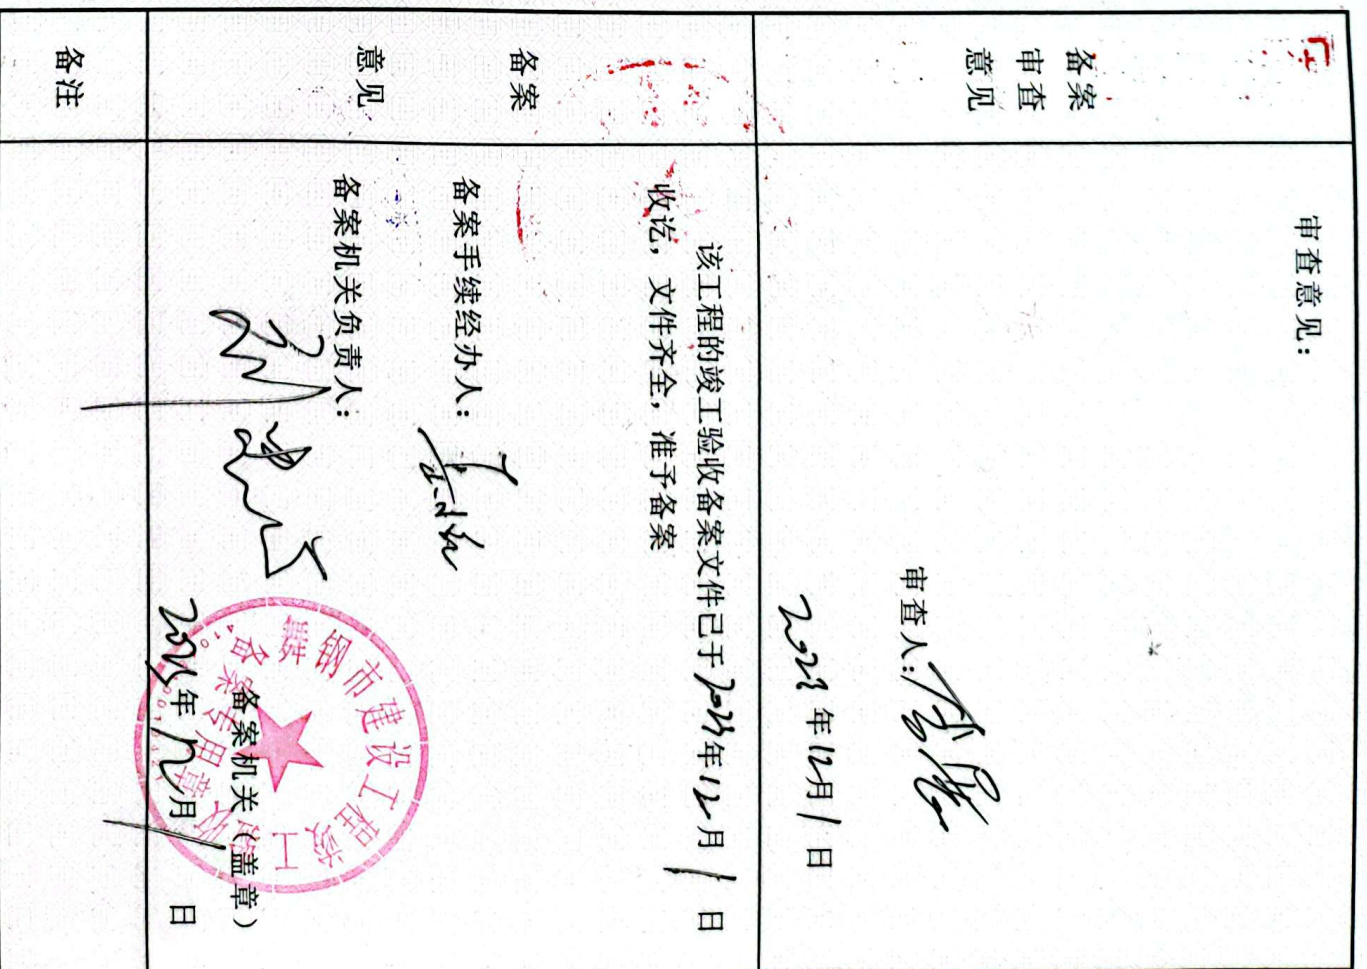 备案
审查
意见
审查意见：
审查人：李
2023年12月1日
备案
意见
该工程的竣工验收备案文件已于2023年12月1日
收讫，文件齐全，准予备案
备案手续经办人：
备案机关负责人：
备案机关（盖章）
2023年12月1日
舞钢市建设工程竣工验收
备案专用章
备注